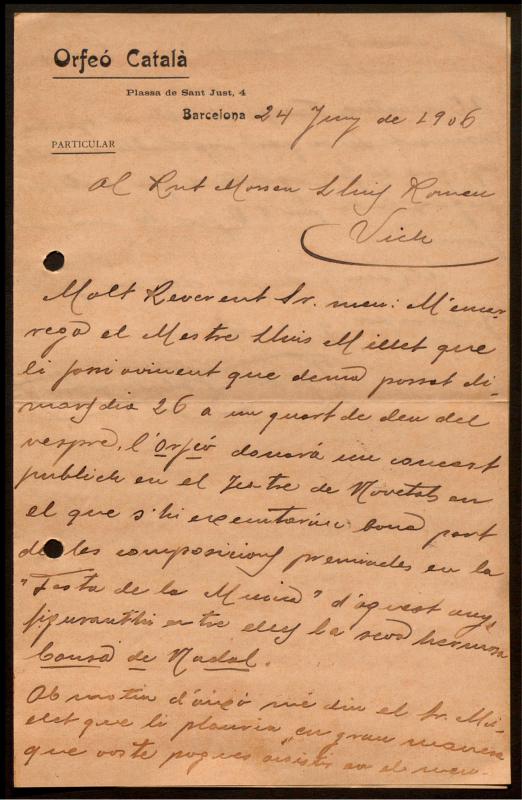 Orfeó Català
Plassa de Sant Just, 4
Barcelona 24 Juny de 1906
PARTICULAR
Al Rnt Mossen Lluis Romeu
Vich
Molt Reverent Sr. meu: M'encar-
rega el Mestre Lluis Millet que
li fassi avinent que demà passat di-
mars dia 26 a un quart de deu del
vespre, l'Orfeó donará un concert
publich en el Teatre de Novetats en
el que s'hi executarán bona part
de les composicions premiades en la
"Festa de la Música" d'aquest any,
figuranthi entre elles la seva hermosa
Cansó de Nadal.
Ab motiu d'aixó me diu el Sr. Mi-
llet que li plauria en gran manera
que vosté pogues assistir en el men-